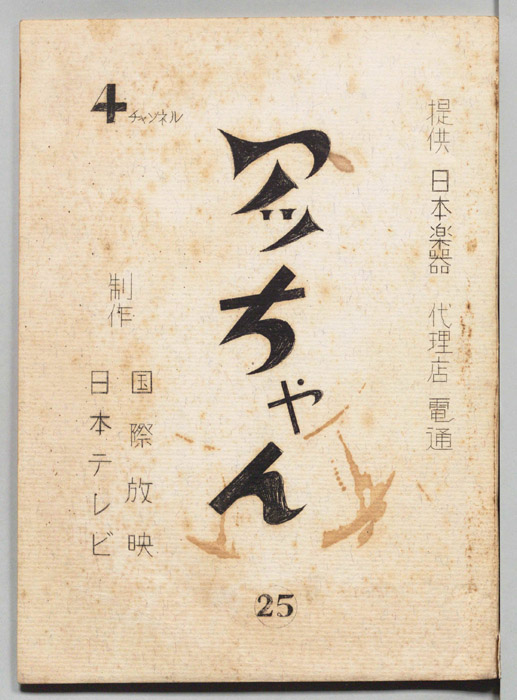 提供 日本楽器 代理店 電通
アッちゃん
25
4チャンネル
制作
国際放映
日本テレビ